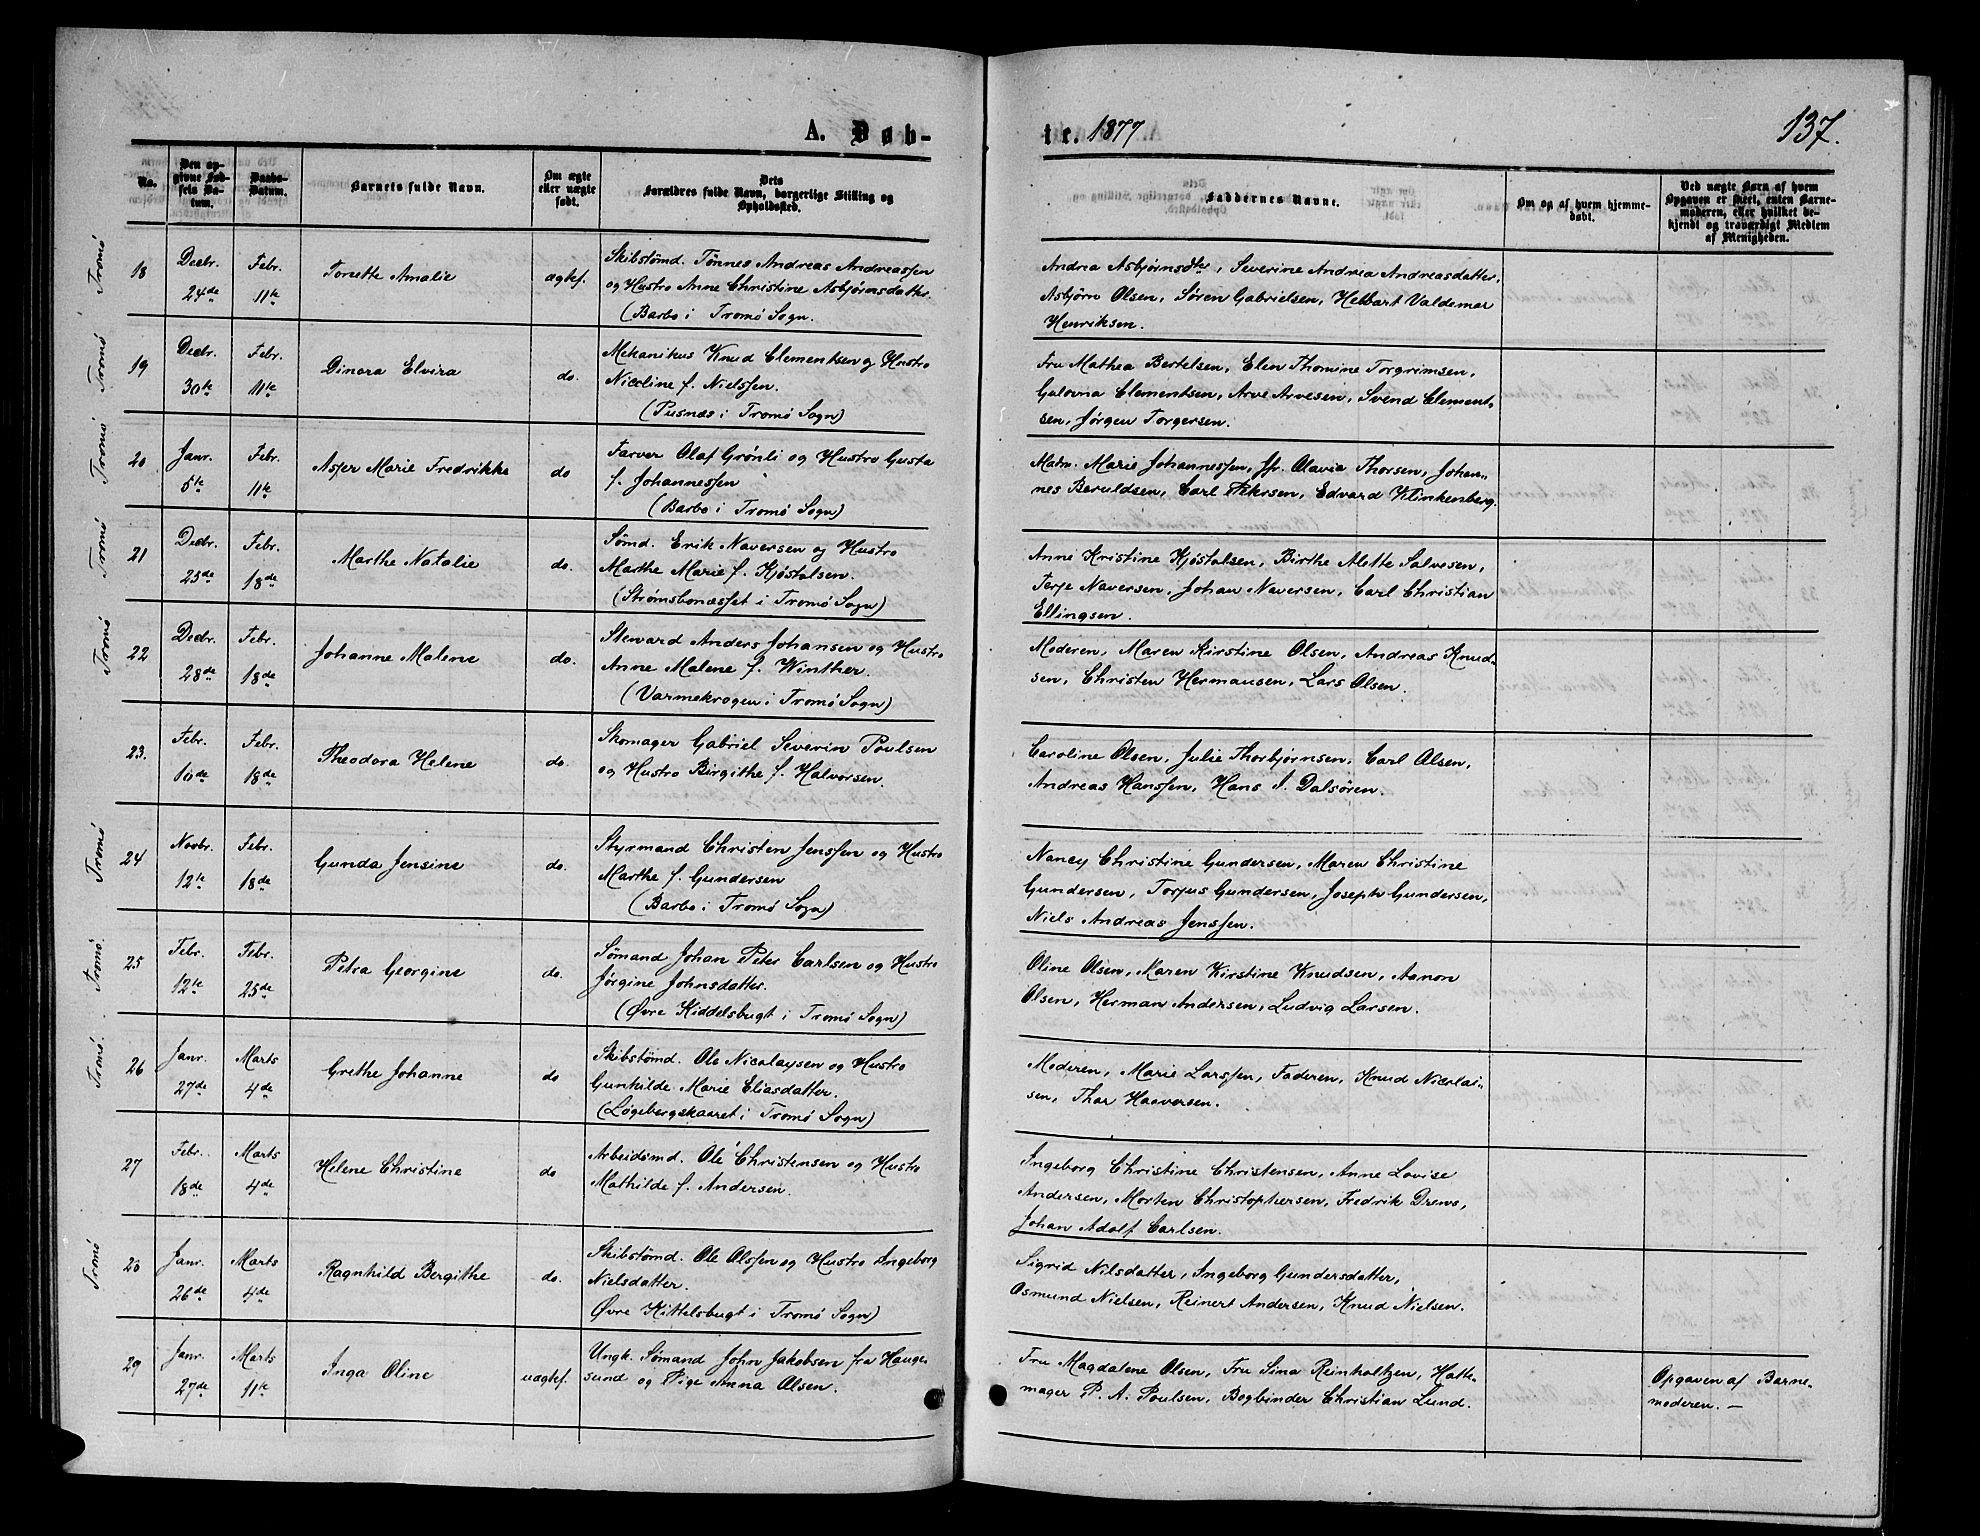 A. Døb-
te. 1877
137.
No.
Den op-
givne Fød-
sels Da-
tum.
Daabs-
Datum.
Barnets fulde Navn.
Om ægte
eller uægte
født.
Dets
Forældres fulde Navn, borgerlige Stilling og
Opholdssted.
Faddernes Navne.
Om og af hvem hjemme-
døbt.
Ved uægte Børn af hvem
Opgaven er skeet, enten Barne-
moderen, eller hvilket be-
kjendt og troværdigt Medlem
af Menigheden.
Tromö
18
Decbr.
24de
Febr.
11te
Tonette Amalie
ægtef.
Skibstömd. Tönnes Andreas Andreassen
og Hustro Anne Christine Asbjørnsdatter.
(Barbo i Tromö Sogn.
Andrea Asbjørnsdtr, Severine Andrea Andreasdatter,
Asbjörn Olsen, Sören Gabrielsen, Hebbart Valdemar
Henriksen.
Tromö
19
Decbr.
30te
Febr.
11te
Dinora Elvira
do.
Mekanikus Knud Clementsen og Hustro
Nicoline f. Nielssen.
(Pusnæs i Tromö Sogn)
Fru Mathea Bertelsen, Elen Thomine Torgrimsen,
Gulovna Clementsen, Arve Arvesen, Svend Clement-
sen, Jörgen Torgersen.
Tromö
20
Janr.
5te
Febr.
11te
Asfer Marie Fredrikke
do
Farver Olaf Grönli og Hustro Gusta
f. Johannessen
(Barbo i Tromö Sogn)
Madm. Marie Johannessen, Jfr. Olavia Thorsen, Johan-
nes Beruldsen, Carl Pettersen, Edvard Klinkenberg.
Tromö
21
Decbr.
25de
Febr.
18de
Marthe Natalie
do.
Sömd. Erik Naversen og Hustro
Marthe Marie f. Kjöstolsen.
(Strömsbonæsset i Tromö Sogn)
Anne Kristine Kjöstolsen, Birthe Alette Salvesen,
Terje Naversen, Johan Naversen, Carl Christian
Ellingsen.
Tromö
22
Decbr.
28de
Febr.
18de
Johanne Malene
do.
Steward Anders Johansen og Hustro
Anne Malene f. Winther.
(Varmekrogen i Tromö Sogn)
Moderen, Maren Kirstine Olsen, Andreas Knud-
sen, Christen Hermansen, Lars Olsen.
23.
Febr.
10de
Febr.
18de
Theodora Helene
do.
Skomager Gabriel Severin Poulsen
og Hustro Birgithe f. Halvorsen.
Caroline Olsen, Julie Thorbjørnsen, Carl Olsen,
Andreas Hanssen, Hans A. Dalsören.
Tromö
24
Novbr.
12te
Febr.
18de
Gunda Jensine
do.
Styrmand Christen Jenssen og Hustro
Marthe f. Gundersen
(Barbo i Tromö Sogn)
Nancy Christine Gundersen, Maren Christine
Gundersen, Torjus Gundersen, Joseph Gundersen,
Niels Andreas Jenssen.
Tromö
25
Febr.
12te
Febr.
25de
Petra Georgine
do.
Sömand Johan Peter Carlsen og Hustro
Jörgine Johnsdatter.
(Øvre Kiddelsbugt i Tromö Sogn)
Oline Olsen, Maren Kirstine Knudsen, Aanon
Olsen, Herman Andersen, Ludvig Larsen.
Tromö.
26
Janr.
27de
Marts
4de
Grethe Johanne
do
Skibstömd. Ole Nicolaysen og Hustro
Gunhilde Marie Eliasdatter.
(Lögebergskaaret i Tromö Sogn)
Moderen, Marie Larssen, Faderen, Knud Nicolai-
sen, Thor Haaversen.
27
Febr.
18de
Marts
4de
Helene Christine
do
Arbeidsmd. Ole Christensen og Hustro
Mathilde f. Andersen.
Ingeborg Christine Christensen, Anne Lovise
Andersen, Morten Christophersen, Fredrik Drews,
Johan Adolf Carlsen.
Tromö
28
Janr.
26de
Marts
4de
Ragnhild Bergithe
do.
Skibstömd. Ole Olssen og Hustro Ingeborg
Nielsdatter.
Øvre Kittelsbugt i Tromö Sogn)
Sigrid Nilsdatter, Ingeborg Gundersdatter,
Osmund Nielsen, Reinert Andersen, Knud Nielsen.
29
Janr.
27de
Marts
11te
Inga Oline
uægtef.
Ungk. Sömand John Jakobsen fra Hauge-
sund og Pige Anna Olsen.
Fru Magdalene Olsen, Fru Sina Reinholtzen, Hatte-
mager P. A. Poulsen, Bogbinder Christian Lund.
Opgaven af Barne-
moderen. —